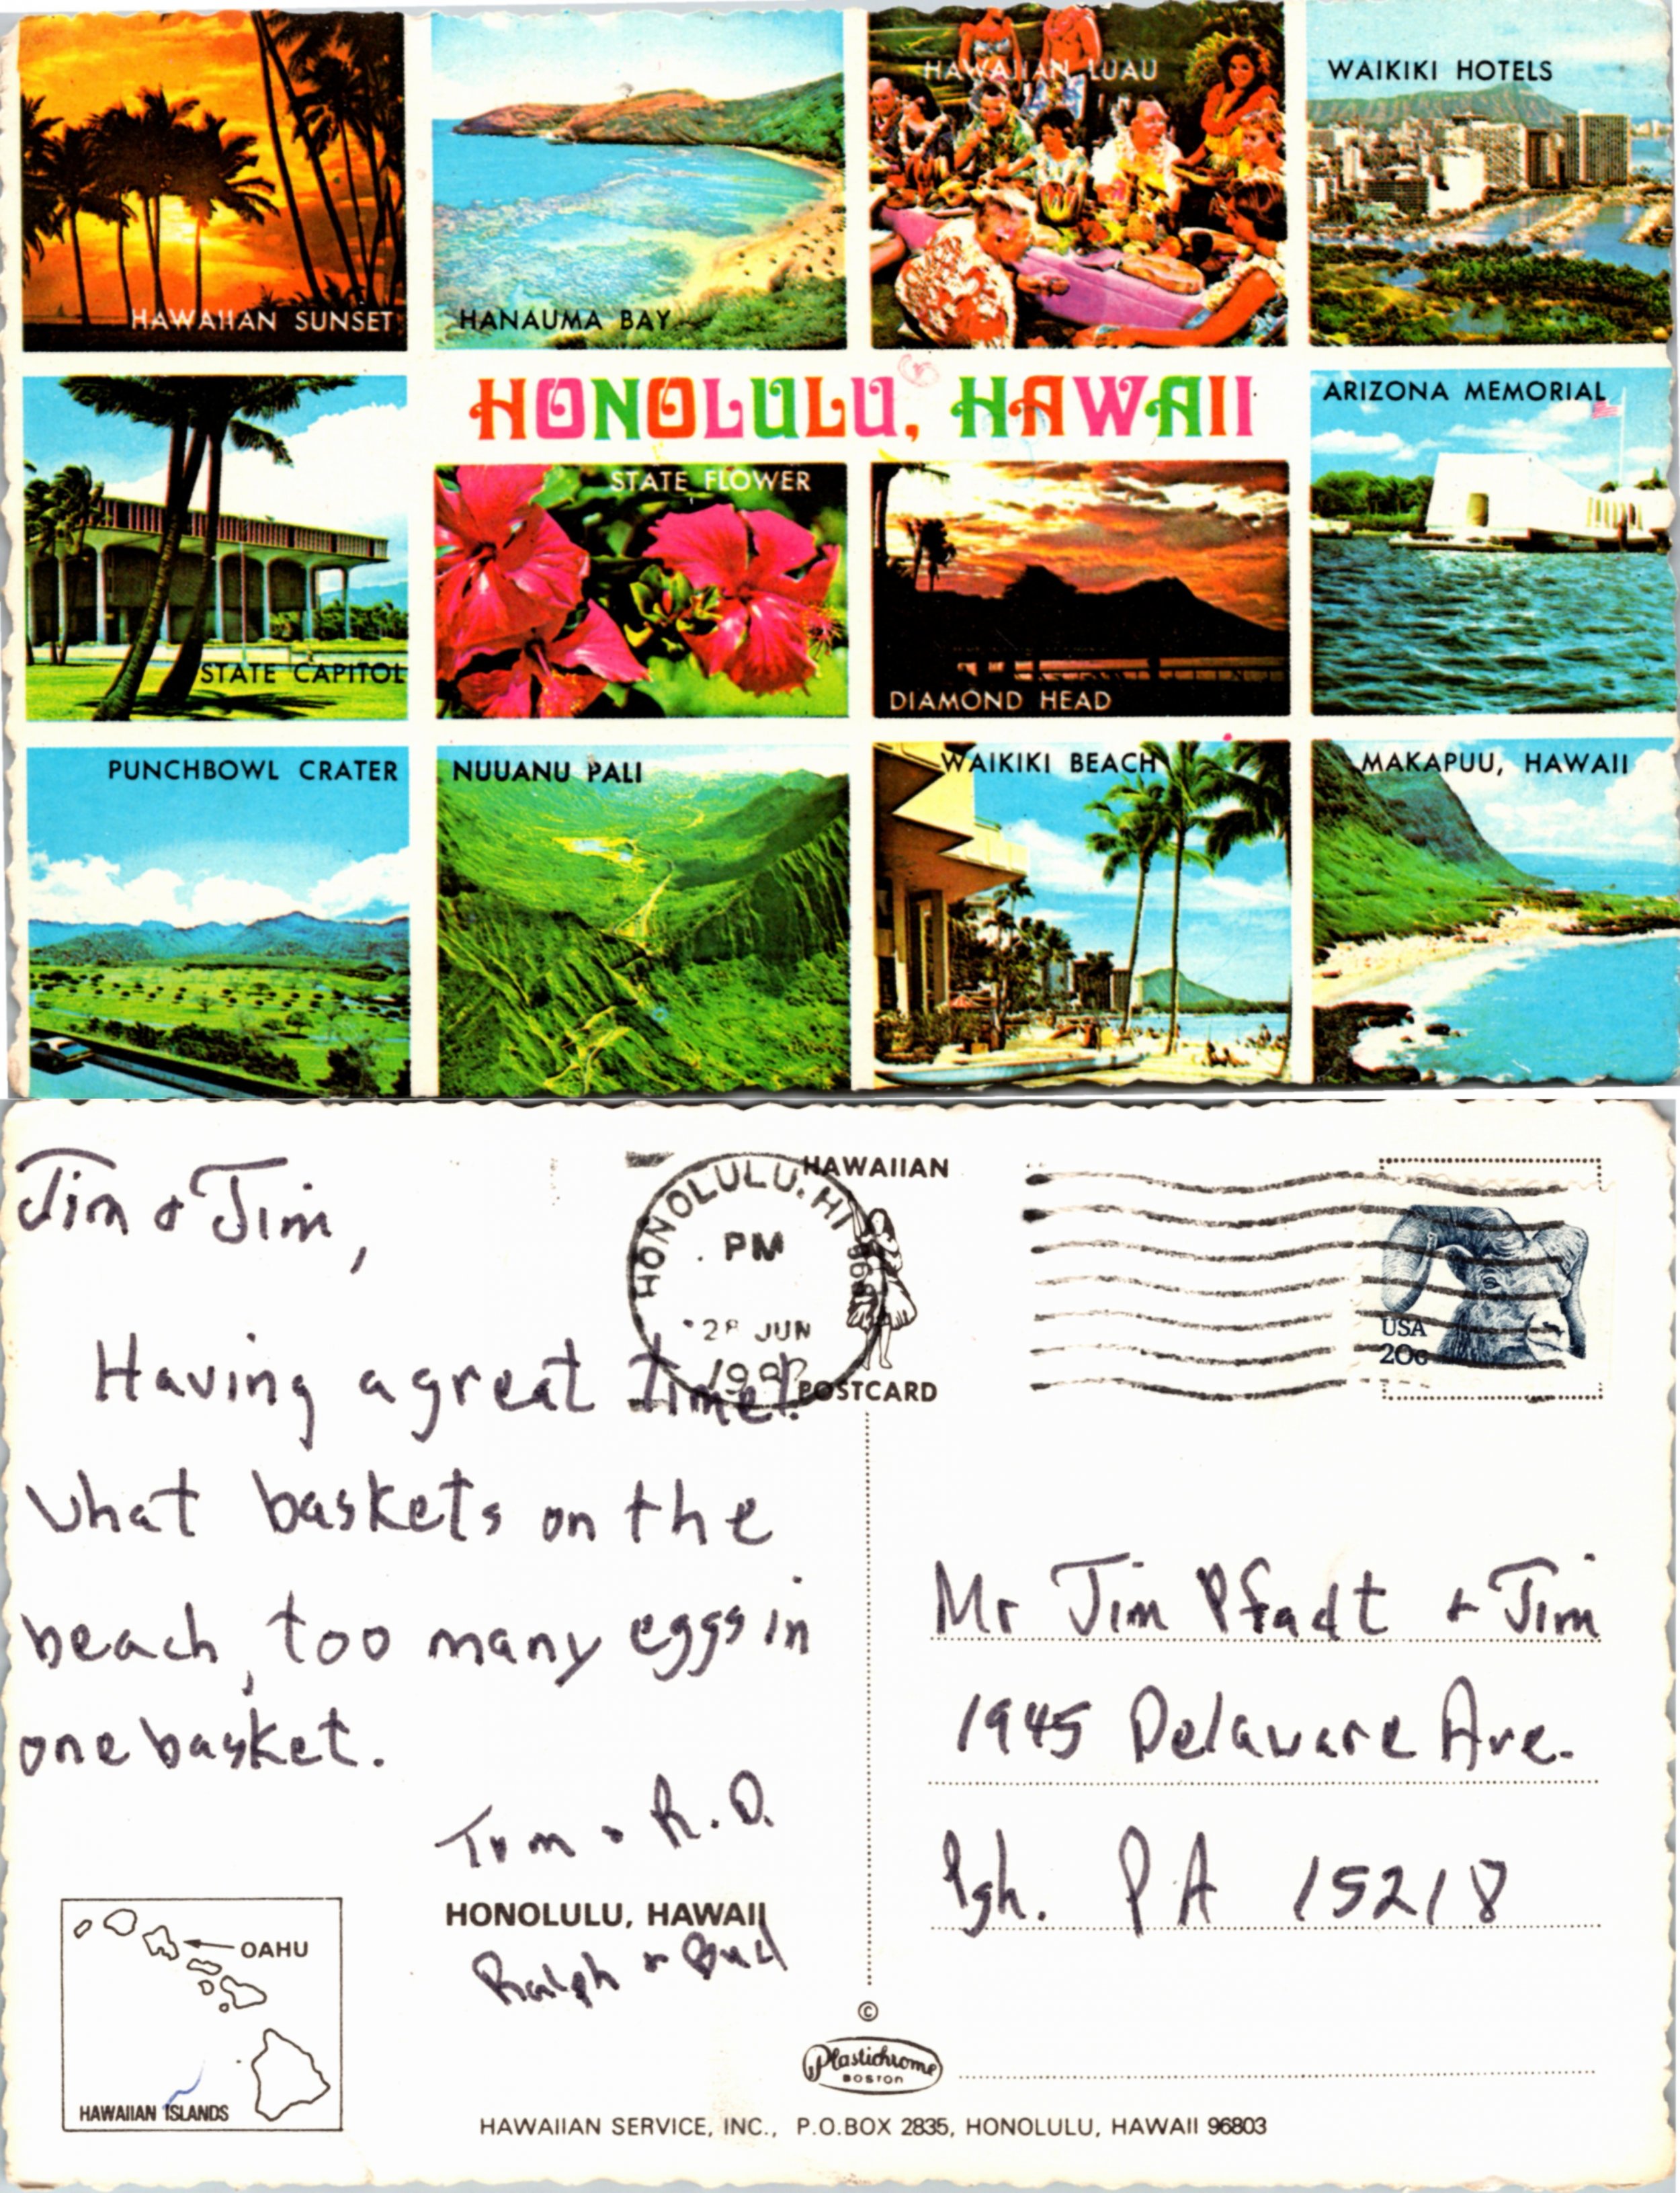 HAWAIIAN SUNSET
HANAUMA BAY
HAWAIIAN LUAU
WAIKIKI HOTELS
HONOLULU, HAWAII
STATE CAPITOL
STATE FLOWER
DIAMOND HEAD
ARIZONA MEMORIAL
PUNCHBOWL CRATER
NUUANU PALI
WAIKIKI BEACH
MAKAPUU, HAWAII
Jim & Jim,
Having a great time!
What baskets on the
beach, too many eggs in
one basket.
Tom & R.D.
Ralph & Bud
HONOLULU, HAWAII
OAHU
HAWAIIAN ISLANDS
HONOLULU, HI
PM
JUN
HAWAIIAN
POSTCARD
USA
20c
Mr Jim Pfadt & Jim
1945 Delaware Ave.
Pgh. PA 15218
©
Plastichrome
BOSTON
HAWAIIAN SERVICE, INC., P.O.BOX 2835, HONOLULU, HAWAII 96803